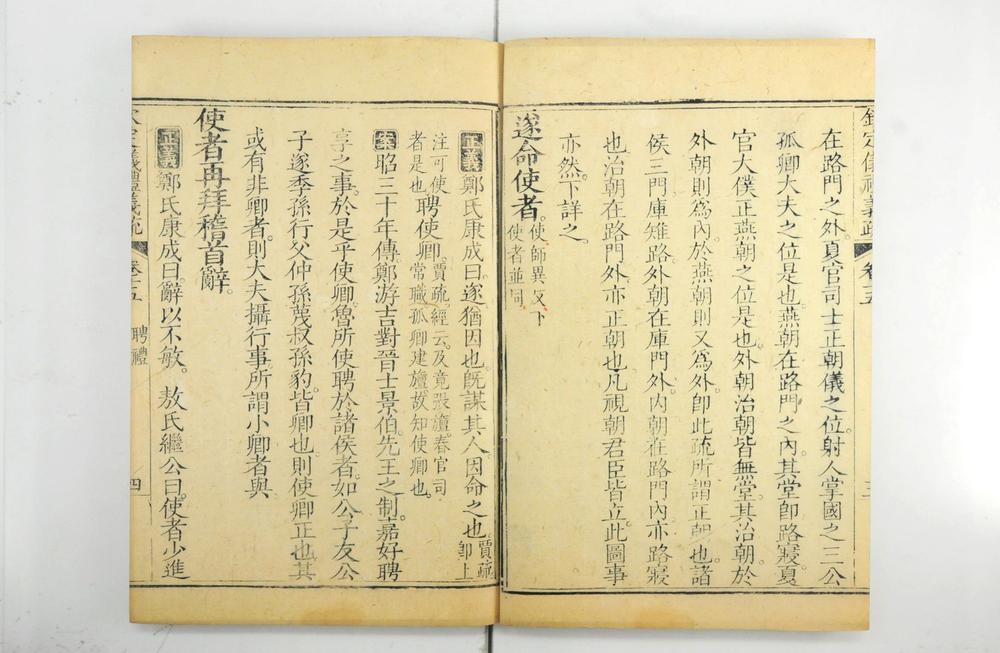 欽定儀禮義疏 卷十五 三
在路門之外夏官司士正朝儀之位射人掌國之三公
孤卿大夫之位是也燕朝在路門之內其堂卽路寢夏
官大僕正燕朝之位是也外朝治朝皆無堂其治朝於
外朝則爲內於燕朝則又爲外卽此疏所謂正朝也諸
侯三門庫雉路外朝在庫門外內朝在路門內亦路寢
也治朝在路門外亦正朝也凡視朝君臣皆立此圖事
亦然下詳之
遂命使者使師異反下
使者並同
正義鄭氏康成曰遂猶因也旣謀其人因命之也賈疏
卽上
注可使
者是也聘使卿賈疏經云及竟張旜春官司
常職孤卿建旜故知使卿也
案昭三十年傳鄭游吉對晉士景伯先王之制嘉好聘
享之事於是乎使卿魯所使聘於諸侯者如公子友公
子遂季孫行父仲孫蔑叔孫豹皆卿也則使卿正也其
或有非卿者則大夫攝行事所謂小卿者與
使者再拜稽首辭
正義鄭氏康成曰辭以不敏 敖氏繼公曰使者少進
禮義疏 卷十五 聘禮 四